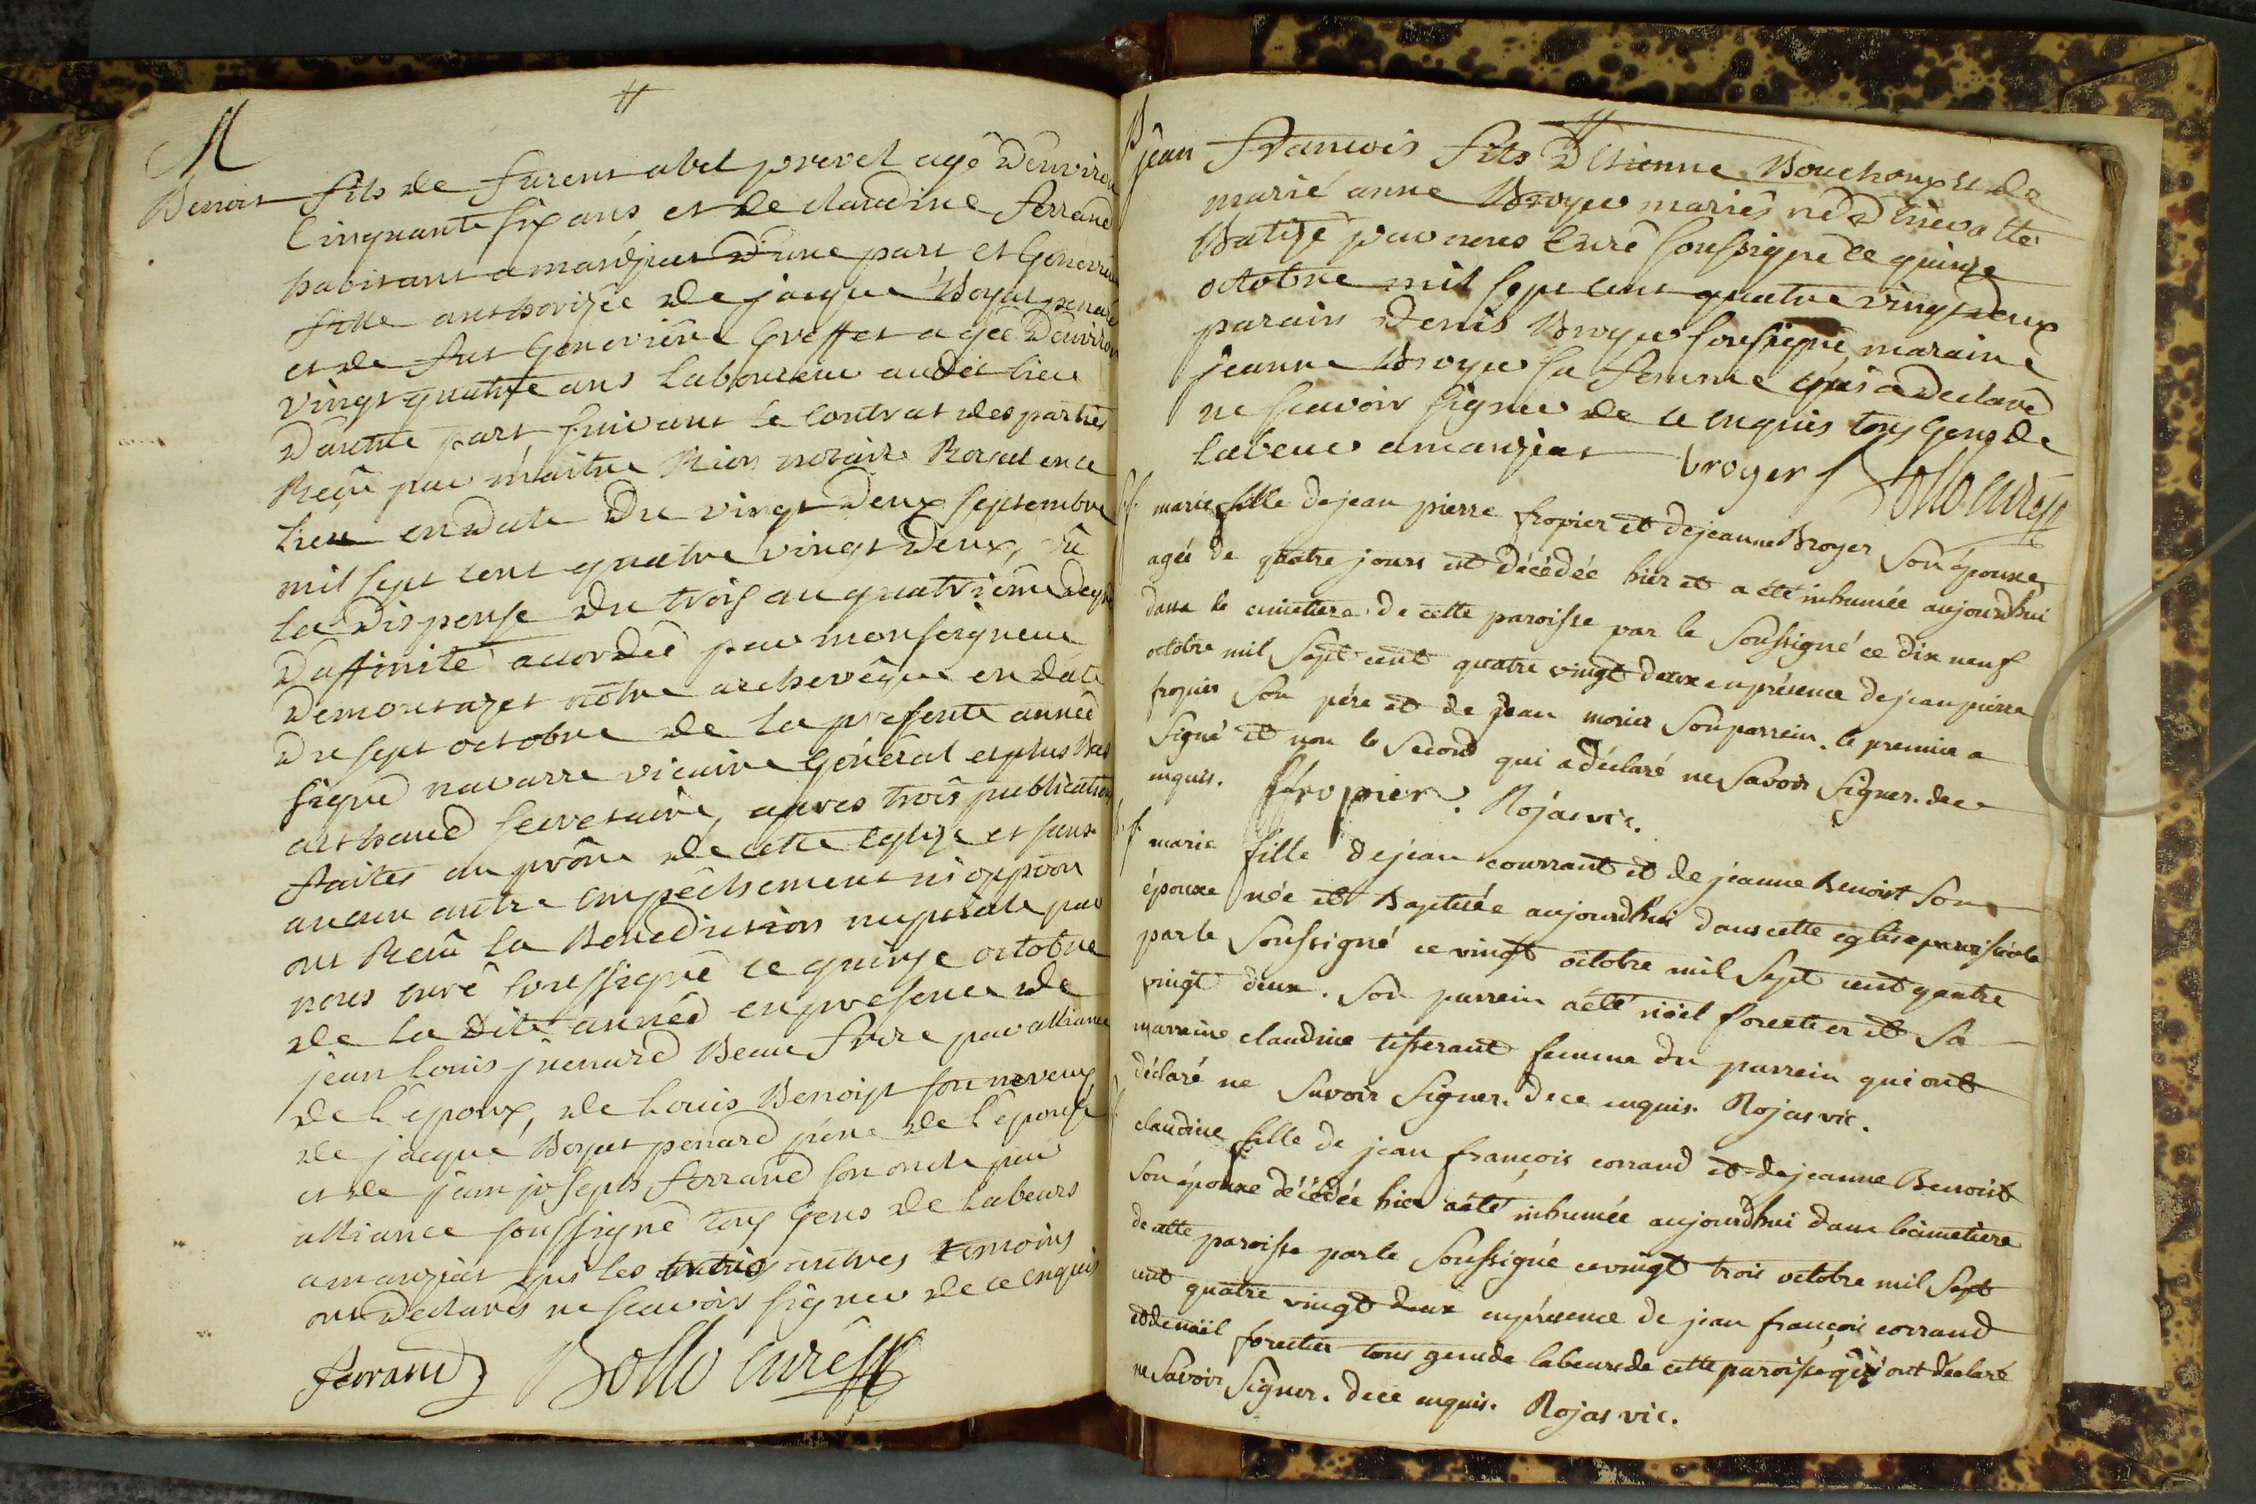 M
Benoit fils de furent abel prevel agé D'environ
Cinquante six ans et de claudine ferrand
habitant a manziat D'une part et Genevieve
fille authorizée de jacque Boyat penard
et de fut Genevieve Greffet agée D'environ
vingt quatre ans laboureur audit lieu
D'autre part suivant le contrat des parties
Reçû par maitre Rion notaire Royal en ce
lieu en date Du vingt Deux septembre
mil sept cent quatre vingt Deux, vû
la Dispense du trois au quatrième degré
D'affinité accordée par monseigneur
Demontazet nôtre archevêque en date
Du sept octobre de la presente année
signé navarre vicaire Général et plus Bas
arthaud secretaire, apres trois publications
faites au prône de cette eglize et sans
aucun autre empêchement ni oppôon
ont Reçû la Benediction nuptiale par
nous curé soussigné ce quinze octobre
de la Dite année en presence de
jean louis juenard Beau frere par alliance
de l'epoux, de louis Benoist son neveux
de jacque Boyat penard pere de l'epouse
et de jean joseph ferrand son oncle par
alliance soussigné tous gens de labeurs
a manziat qui les autres temoins
ont Declarés ne scavoir signer de ce enquis
ferrand Bollo curé
jean francois fils D'Etienne Bouchoux et de
marie anne Broyer mariés né D'hier a été
Batizé par nous Curé soussigné ce quinze
octobre mil sept cent quatre vingt Deux
parain Denis Broyer soussigné, maraine
jeanne Broyer sa femme qui a Declaré
ne scavoir signer de ce enquis tous Gens de
labeur a manziat
broyer Bollo curé
marie fille de jean pierre fropier et de jeanne Broyer son épouse
agée de quatre jours est décédée hier et a été inhumée aujourdhui
dans le cimetiere de cette paroisse par le Soussigné ce dix neuf
octobre mil Sept cent quatre vingt deux en présence de jean pierre
fropier Son père et de jean morier Son parrein. le premier a
Signé et non le Second qui a déclaré ne Savoir Signer. de ce
enquis. ffropier. Rojas vic.
marie fille de jean courrant et de jeanne Benoist Son
épouse née et Baptisée aujourdhui dans cette eglise paroissiale
par le Soussigné ce vingt octobre mil Sept cent quatre
vingt deux. Son parrein a été nöel forestier et Sa
marraine claudine tisserant femme du parrein qui ont
déclaré ne Savoir Signer. de ce enquis. Rojas vic.
claudine fille de jean françois corrand et de jeanne Benoist
Son épouse décédée hier a été inhumée aujourdhui dans le cimetiere
de cette paroisse par le Soussigné ce vingt trois octobre mil Sept
cent quatre vingt deux en présence de jean françois corrand
et de noël forestier tous gens de labeurs de cette paroisse qui ont déclaré
ne Savoir Signer. de ce enquis. Rojas vic.